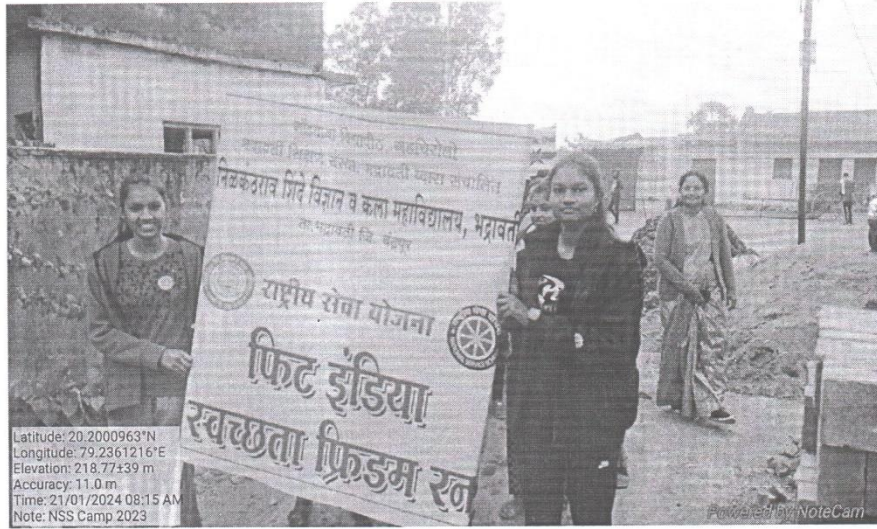 गोंडवाना विद्यापीठ, गडचिरोली
भद्रावती शिक्षण संस्था, भद्रावती व्दारा संचालित
निळकंठराव शिंदे विज्ञान व कला महाविद्यालय, भद्रावती
ता. भद्रावती जि. चंद्रपूर
राष्ट्रीय सेवा योजना
फिट इंडिया
स्वच्छता फ्रिडम रन
Latitude: 20.2000963°N
Longitude: 79.2361216°E
Elevation: 218.77±39 m
Accuracy: 11.0 m
Time: 21/01/2024 08:15 AM
Note: NSS Camp 2023
Powered By NoteCam